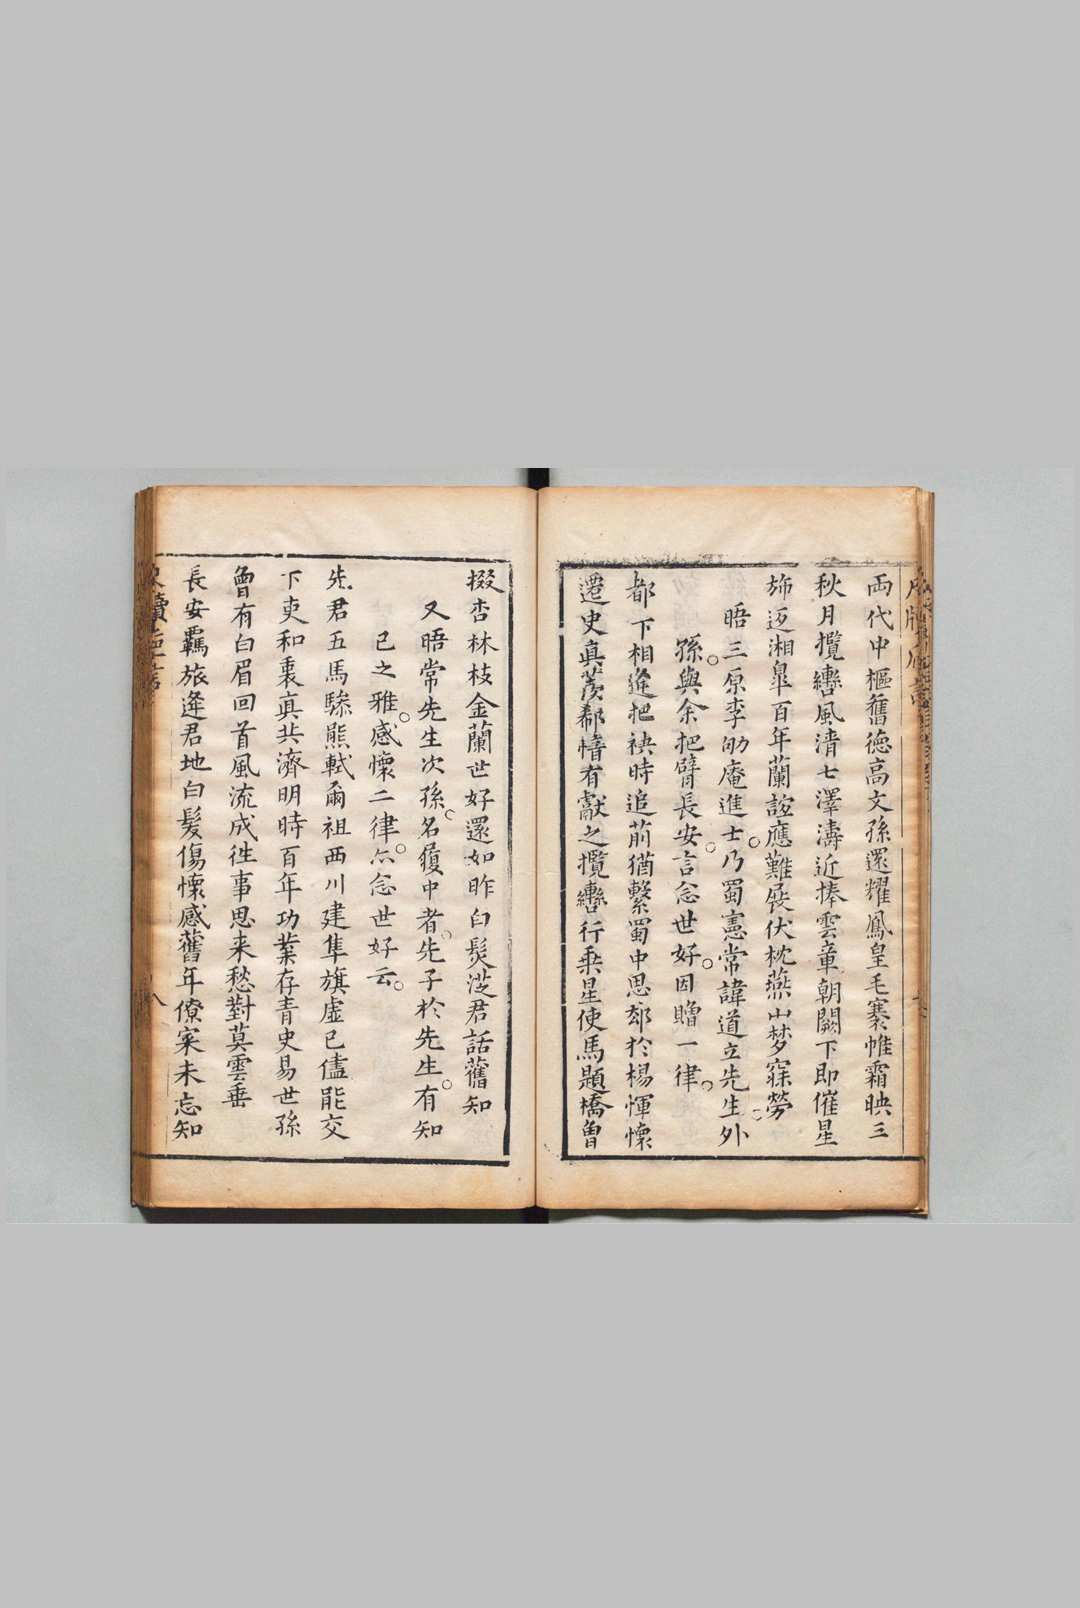 両代中樞舊德高文孫還耀鳳皇毛褰帷霜映三
秋月攬轡風清七澤濤近捧雲章朝闕下即催星
斾返湘皐百年蘭誼應難展伏枕燕山梦寐勞
晤三原李劬庵進士乃蜀憲常諱道立先生外
孫與余把臂長安言念世好因贈一律
都下相逢把袂時追前猶繫蜀中思郄於楊惲懷
遷史真羨郗愔有獻之攬轡行乗星使馬題橋曽
掇杏林枝金蘭世好還如昨白髮逰君話舊知
又晤常先生次孫名履中者先子於先生有知
已之雅感懷二律亦念世好云
先君五馬驂熊軾爾祖西川建隼旗虛已儘能交
下吏和衷真共濟明時百年功業存青史易世孫
曾有白眉回首風流成徃事思来愁對莫雲垂
長安羈旅逢君地白髪傷懷感舊年僚寀未忘知